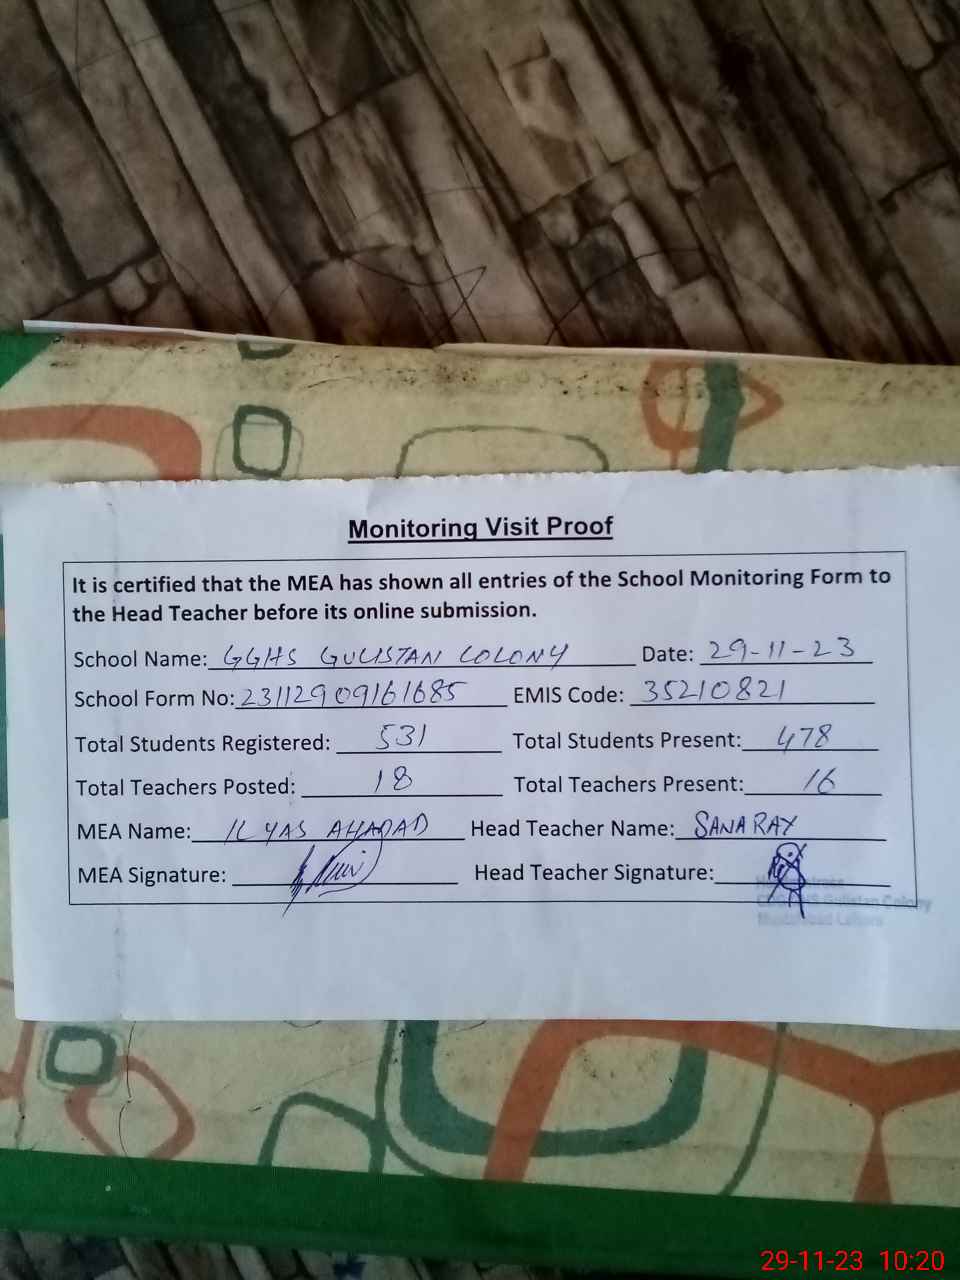 Monitoring Visit Proof
It is certified that the MEA has shown all entries of the School Monitoring Form to
the Head Teacher before its online submission.
School Name: GGHS GULISTAN COLONY Date: 29-11-23
School Form No: 23112909161685 EMIS Code: 35210821
Total Students Registered: 531 Total Students Present: 478
Total Teachers Posted: 18 Total Teachers Present: 16
MEA Name: ILYAS AHAMAD Head Teacher Name: SANA RAY
MEA Signature: Head Teacher Signature:
Gulistan Colony
Lahore
29-11-23 10:20